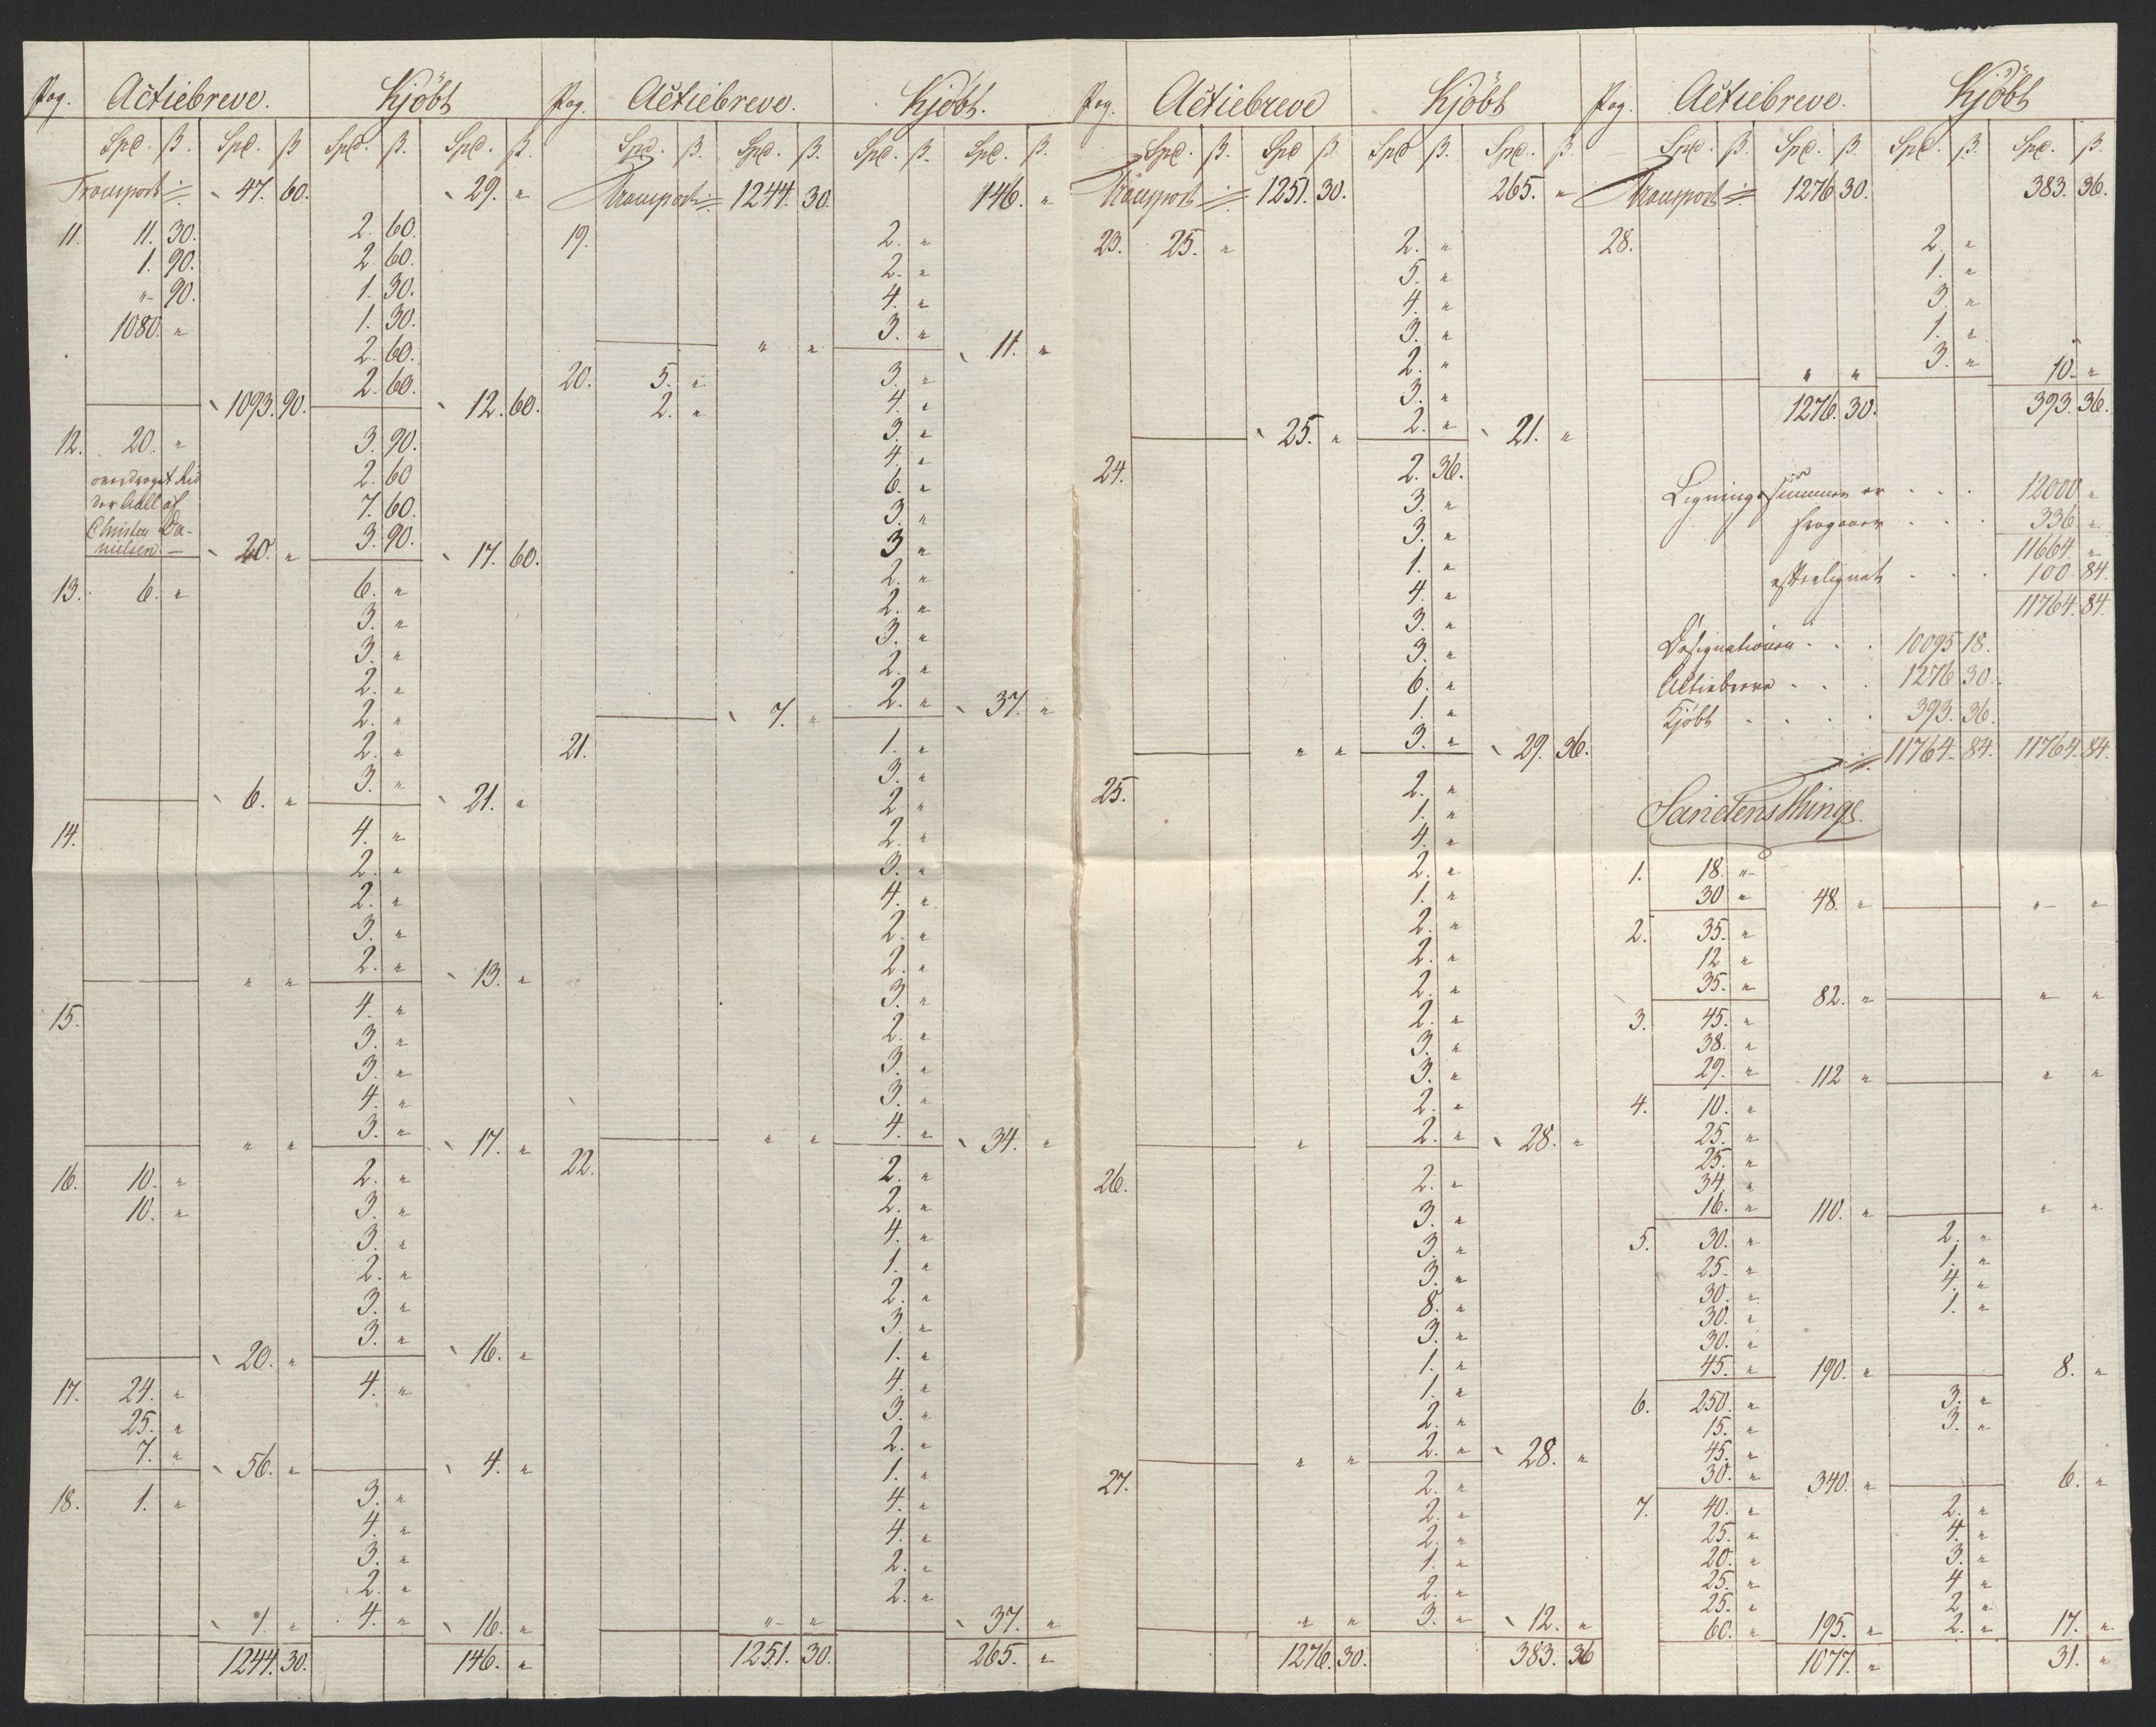 Pag. Actiebreve. Kjöbt
Spd. ß. Spd. ß Spd. ß. Spd. ß.
Transport 47. 60. 29. "
11. 11. 30. 2. 60.
1. 90. 2. 60.
" 90. 1. 30.
1080. " 1. 30.
2. 60.
2. 60.
1093. 90. 12. 60.
12. 20. " 3. 90.
overdraget Rid 2. 60
der Aall af 7. 60.
Christen Da- 3. 90.
nielsen. — 20. " 17. 60.
13. 6. " 6. "
3. "
3. "
2. "
2. "
2. "
3. "
6. " 21. "
14. 4. "
2. "
2. "
3. "
2. "
" " 13. "
15. 4. "
3. "
3. "
4. "
3. "
" " 17. "
16. 10. " 2. "
10. " 3. "
3. "
2. "
3. "
3. "
20. " 16. "
17. 24. " 4. "
25. "
7. "
56. " 4. "
18. 1. " 3. "
4. "
3. "
2. "
1. " 4. " 16. "
1244. 30. 146. "
Pag. Actiebreve. Kjöbt.
Spd. ß. Spd. ß. Spd. ß. Spd. ß.
Transport 1244. 30. 146. "
19. 2. "
2. "
4. "
3. "
" " 11. "
20. 5. " 3. "
2. " 4. "
3. "
4. "
6. "
3. "
3 "
2. "
2. "
3. "
2. "
2. "
7. " 37. "
21. 1. "
3. "
2 "
2. "
3. "
4. "
2. "
2. "
3. "
2. "
3. "
3. "
4. "
" " 34. "
22. 2. "
2. "
4. "
1. "
2. "
3. "
1. "
4. "
3. "
2. "
1. "
4. "
4. "
2. "
2. "
" " 37. "
1251. 30. 265. "
Pag. Actiebreve Kjöbt
Spd. ß. Spd ß. Spd ß. Spd. ß.
Transport 1251. 30. 265. "
23. 25. " 2. "
5. "
4. "
3. "
2. "
3. "
2. "
25. " 21. "
24. 2. 36.
3. "
3. "
1. "
4. "
3. "
3. "
6. "
1. "
3. "
" " 29. 36.
25. 2. "
1. "
4. "
2. "
1. "
2. "
2. "
2. "
2. "
3. "
3. "
2. "
2. "
" 28. "
26. 2. "
3. "
3. "
3. "
8. "
3. "
1. "
1. "
2. "
2. "
" " 28. "
27. 2. "
2. "
2. "
1. "
2. "
" " 3. " 12. "
1276. 30. 383. 36
Pag. Actiebreve. Kjöbt
Spd. ß. Spd. ß. Spd. ß. Spd. ß.
Transport 1276 30. 383. 36.
28. 2. "
1. "
3. "
1. "
3. "
" " 10. "
1276. 30. 393. 36.
Ligningssummen er . . . 12000 "
fragaaer . . . 336. "
11664. "
efterlignet . . . 100. 84.
11764. 84.
Designationen . . . 10095 18.
Actiebreve . . . 1276 30.
Kjöbt . . . . 393. 36.
11764. 84. 11764. 84.
Sandens Thingl.
1. 18. "
30 " 48. " " "
2. 35. "
12 "
35. " 82. " " "
3. 45. "
38. "
29. " 112 " " "
4. 10. "
25. "
25. "
34. "
16. " 110. " " "
5. 30. " 2. "
25. " 1. "
30. " 4. "
30. " 1. "
30. "
45. " 190. " 8. "
6. 250. " 3. "
15. " 3. "
45. "
30. " 340. " 6. "
7. 40. " 2. "
25. " 4. "
20. " 3. "
25. " 4 "
25. " 2. "
60. " 195. " 2. " 17. "
1077. " 31. "